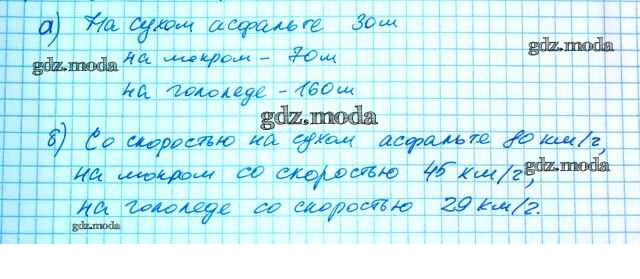 а) На сухом асфальте 30м
на мокром - 70м
на гололеде - 160м
б) Со скоростью на сухом асфальте 80 км/г,
на мокром со скоростью 45 км/г,
на гололеде со скоростью 29 км/г.
gdz.moda
gdz.moda
gdz.moda
gdz.moda
gdz.moda